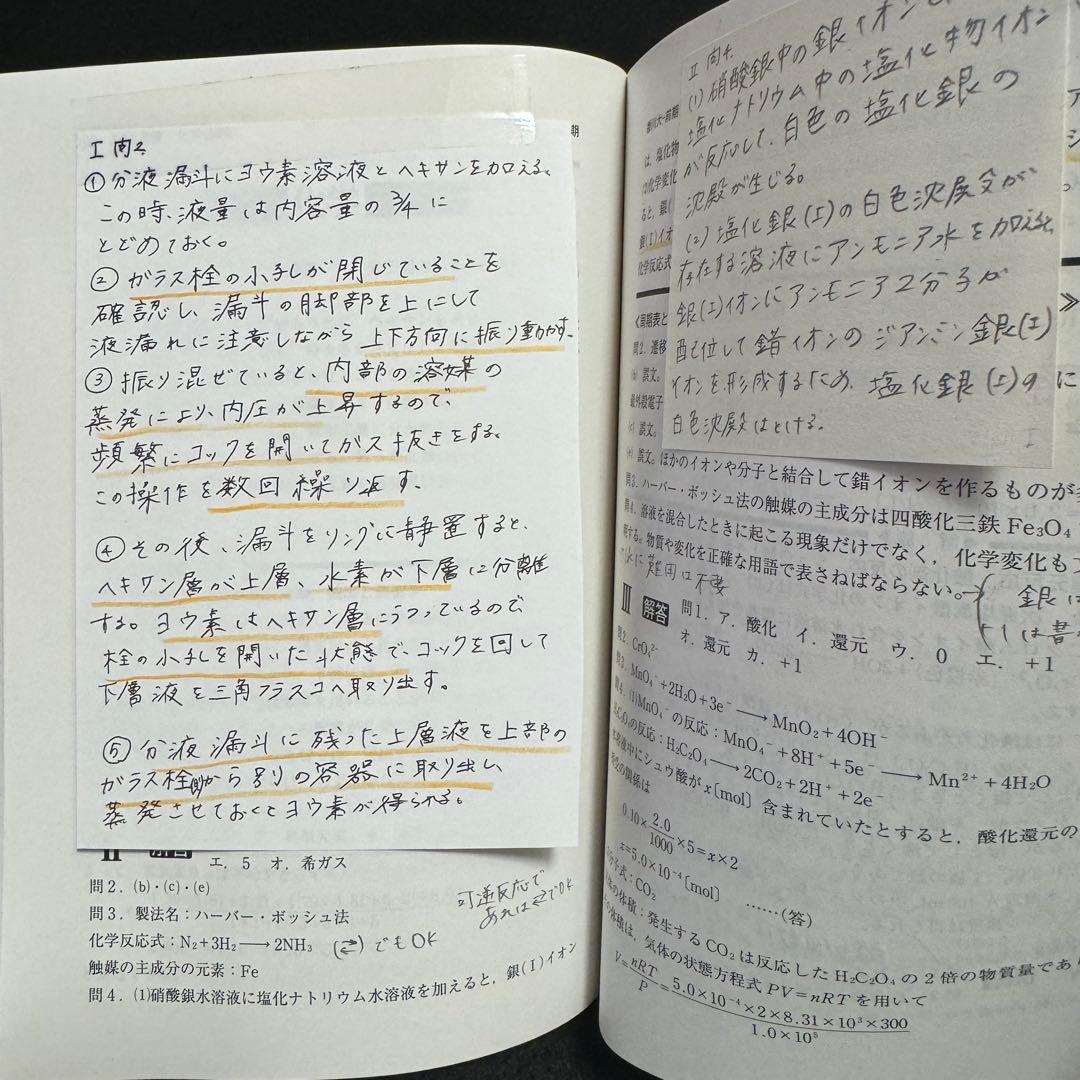 期
I 問2
①分液漏斗にヨウ素溶液とヘキサンを加える。
この時、液量は内容量の3/4に
とどめておく。
②ガラス栓の小孔が閉じていることを
確認し、漏斗の脚部を上にして
液漏れに注意しながら上下方向に振り動かす。
③振り混ぜていると、内部の溶媒の
蒸発により、内圧が上昇するので、
頻繁にコックを開いてガス抜きをする。
この操作を数回繰り返す。
④その後、漏斗をリングに静置すると、
ヘキサン層が上層、水素が下層に分離
する。ヨウ素はヘキサン層にうつっているので
栓の小孔を開いた状態で、コックを回して
下層液を三角フラスコへ取り出す。
⑤分液漏斗に残った上層液を上部の
ガラス栓側から別の容器に取り出し、
蒸発させておくとヨウ素が得られる。
II 解答
エ．5 オ．希ガス
問2．(b)・(c)・(e)
問3．製法名：ハーバー・ボッシュ法
化学反応式：N₂+3H₂⟶2NH₃ (⇄)でもOK
可逆反応で
あれば⇄でOK
触媒の主成分の元素：Fe
問4．(1)硝酸銀水溶液に塩化ナトリウム水溶液を加えると，銀(I)イオン
II 問4.
(1)硝酸銀中の銀イオンと
塩化ナトリウム中の塩化物イオン
が反応して、白色の塩化銀の
沈殿が生じる。
(2)塩化銀(I)の白色沈殿が
存在する溶液にアンモニア水を加える。
銀(I)イオンにアンモニア2分子が
配位して錯イオンのジアンミン銀(I)
イオンを形成するため、塩化銀(I)の
白色沈殿はとける。
香川大-前期
は，塩化物
は化学変化
ると，銀(
銀(I)イオ
化学反応式
《周期表と
問2．遷移
(b) 誤文。
最外殻電子
(c) 誤文。
に
(e) 誤文。ほかのイオンや分子と結合して錯イオンを作るものが
問3．ハーバー・ボッシュ法の触媒の主成分は四酸化三鉄 Fe₃O₄
問4．溶液を混合したときに起こる現象だけでなく，化学変化も
明する。物質や変化を正確な用語で表さねばならない。
銀は
+1は書
III 解答 問1．ア．酸化 イ．還元 ウ．0 エ．+1
オ．還元 カ．+1
問2．CrO₄²⁻
問3．MnO₄⁻+2H₂O+3e⁻⟶MnO₂+4OH⁻
問4．(1)MnO₄⁻の反応：MnO₄⁻+8H⁺+5e⁻⟶Mn²⁺+4H₂O
H₂C₂O₄の反応：H₂C₂O₄⟶2CO₂+2H⁺+2e⁻
水溶液中にシュウ酸が x〔mol〕含まれていたとすると，酸化還元の
の関係は
0.10×2.0/1000×5=x×2
x=5.0×10⁻⁴〔mol〕 ……(答)
分子式：CO₂
体の体積：発生する CO₂ は反応した H₂C₂O₄ の 2 倍の物質量であ
体積は，気体の状態方程式 PV=nRT を用いて
V=nRT/P=5.0×10⁻⁴×2×8.31×10³×300/1.0×10⁵